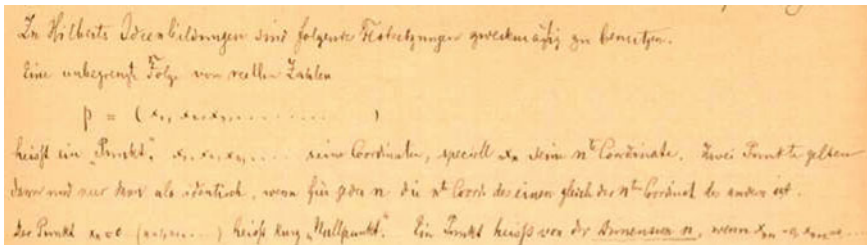 Zu Hilberts Ideenbildungen sind folgende Festsetzungen zweckmäßig zu benutzen.
Eine unbegrenzte Folge von reellen Zahlen
p = (x₁, x₂, x₃, . . . . . . . . . )
heißt ein „Punkt", x₁, x₂, x₃, . . . . seine Coordinaten, speciell xₙ seine nᵗᵉ Coordinate. Zwei Punkte gelten
dann und nur dann als identisch, wenn für jedes n die nᵗᵉ Coord. des einen gleich der nᵗᵉⁿ Coordinate des andern ist.
Der Punkt xₙ=0 heißt kurz „Nullpunkt". Ein Punkt heißt von der Dimension n, wenn